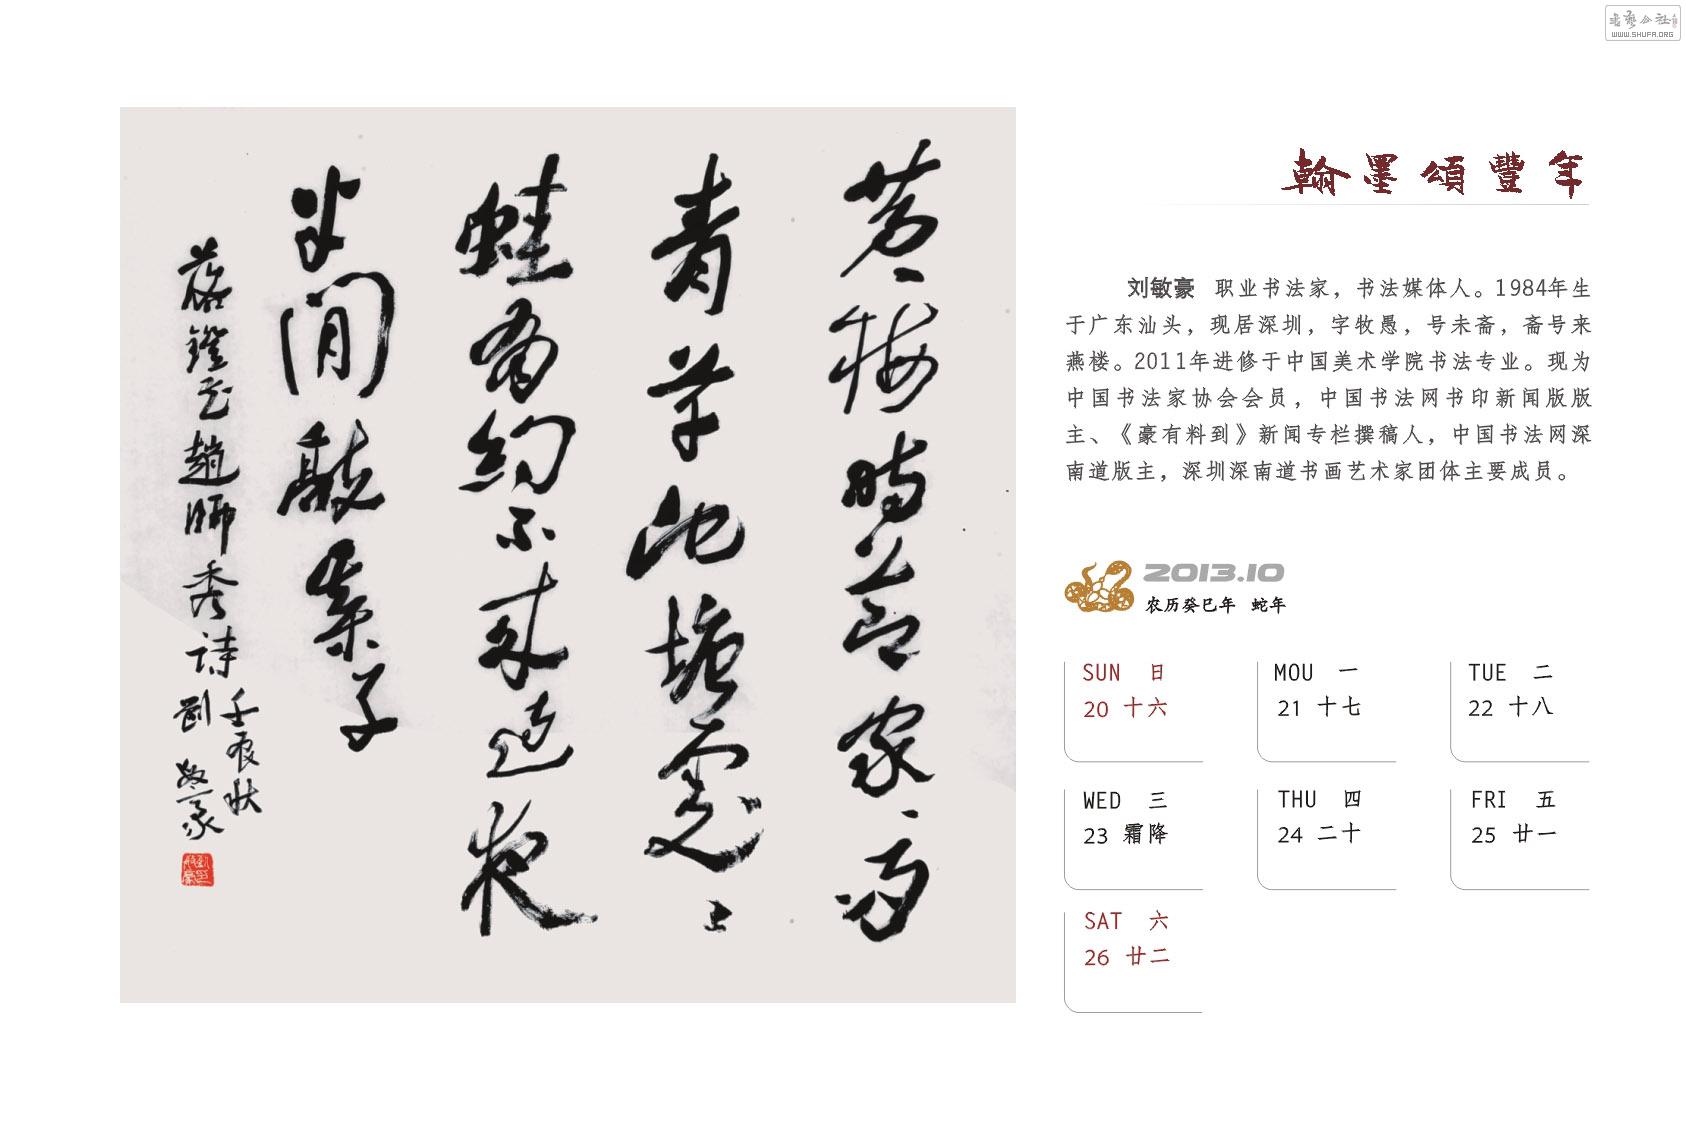 書藝公社
WWW.SHUFA.ORG
黄梅時節家〻雨
青草池塘處〻
蛙有約不來過夜
半閒敲棊子
落鐙花趙師秀詩
壬辰秋
劉敏豪
翰墨頌豐年
刘敏豪 职业书法家，书法媒体人。1984年生
于广东汕头，现居深圳，字牧愚，号未斋，斋号来
燕楼。2011年进修于中国美术学院书法专业。现为
中国书法家协会会员，中国书法网书印新闻版版
主、《豪有料到》新闻专栏撰稿人，中国书法网深
南道版主，深圳深南道书画艺术家团体主要成员。
2013.10
农历癸巳年 蛇年
SUN 日
20 十六
MOU 一
21 十七
TUE 二
22 十八
WED 三
23 霜降
THU 四
24 二十
FRI 五
25 廿一
SAT 六
26 廿二